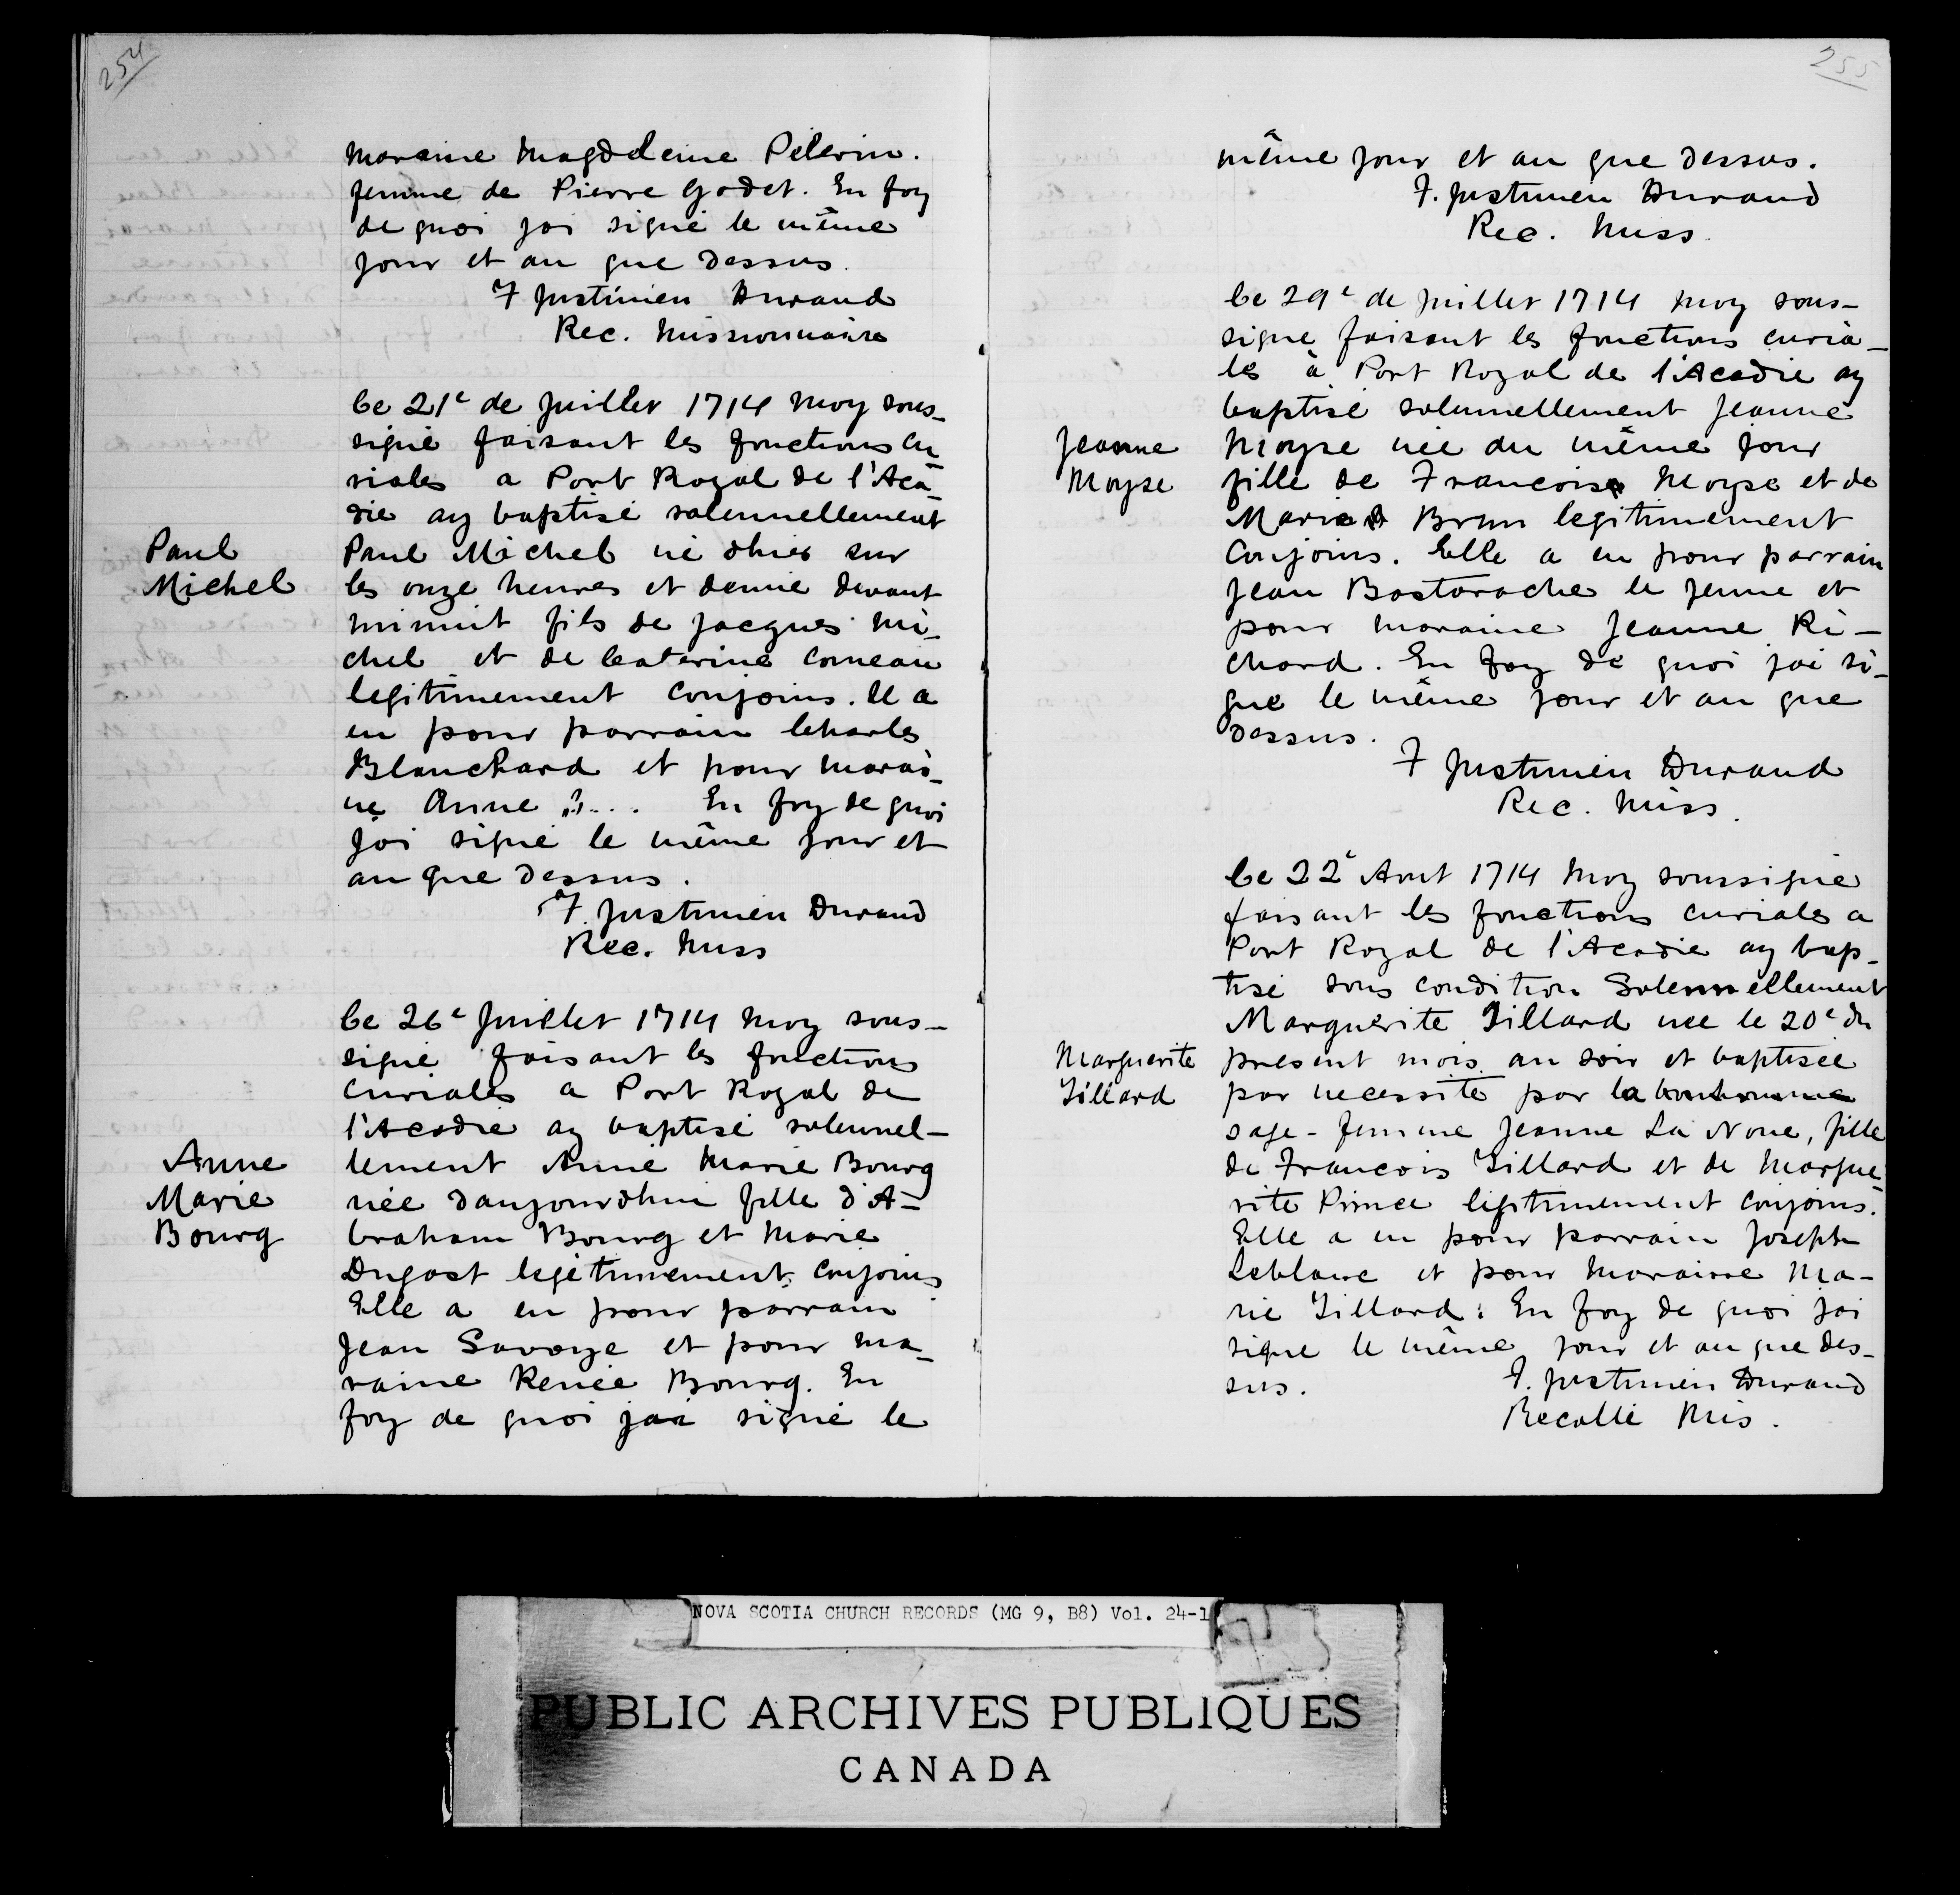 254
Maraine Magdeleine Pélerin.
femme de Pierre Godet. En foy
de quoi jai signé le même
jour et an que dessus.
F Justinien Durand
Rec. Missionnaire
Le 21e de Juillet 1714 Moy sous-
signé faisant les fonctions cu-
riales a Port Royal de l'Aca-
die ay baptisé solennellement
Paul
Michel
Paul Michel né dhier sur
les onze heures et demie devant
minuit fils de Jacques Mi-
chel et de Caterine Comeau
legitimement conjoins. Il a
eu pour parrain Charles
Blanchard et pour marai-
ne Anne ?... En foy de quoi
jai signé le même jour et
an que dessus.
F. Justinien Durand
Rec. Miss
Le 26e Juillet 1714 Moy sous-
signé faisant les fonctions
curiales a Port Royal de
l'Acadie ay baptisé solennel-
Anne
Marie
Bourg
lement Anne Marie Bourg
née daujourdhui fille d'A-
braham Bourg et Marie
Dugast legitimement conjoins
Elle a eu pour parrain
Jean Savoye et pour ma-
raine Renée Bourg. En
foy de quoi jai signé le
255
même jour et an que dessus.
F. Justinien Durand
Rec. Miss.
Le 29e de Juillet 1714 Moy sous-
signe faisant les fonctions curia-
les à Port Royal de l'Acadie ay
baptisé solennellement Jeanne
Jeanne
Moyse
Moyse née du même jour
fille de Francois Moyse et de
Marie Brun legitimement
conjoins. Elle a eu pour parrain
Jean Bastarache le jeune et
pour maraine Jeanne Ri-
chard. En foy de quoi jai si-
gne le même jour et an que
dessus.
F Justinien Durand
Rec. Miss.
Le 22e Aout 1714 Moy soussigné
faisant les fonctions curiales a
Port Royal de l'Acadie ay bap-
tisé sous condition Solennellement
Marguerite Gillard née le 20e du
Marguerite
Gillard
présent mois au soir et baptisée
par necessité par la bonhomme
sage-femme Jeanne La Noue, fille
de Francois Gillard et de Margue-
rite Prince legitimement conjoins.
Elle a eu pour parrain Joseph
Leblanc et pour Maraine Ma-
rie Gillard. En foy de quoi jai
signe le même jour et an que des-
sus.
F. Justinien Durand
Recollé Mis.
NOVA SCOTIA CHURCH RECORDS (MG 9, B8) Vol. 24-1
PUBLIC ARCHIVES PUBLIQUES
CANADA